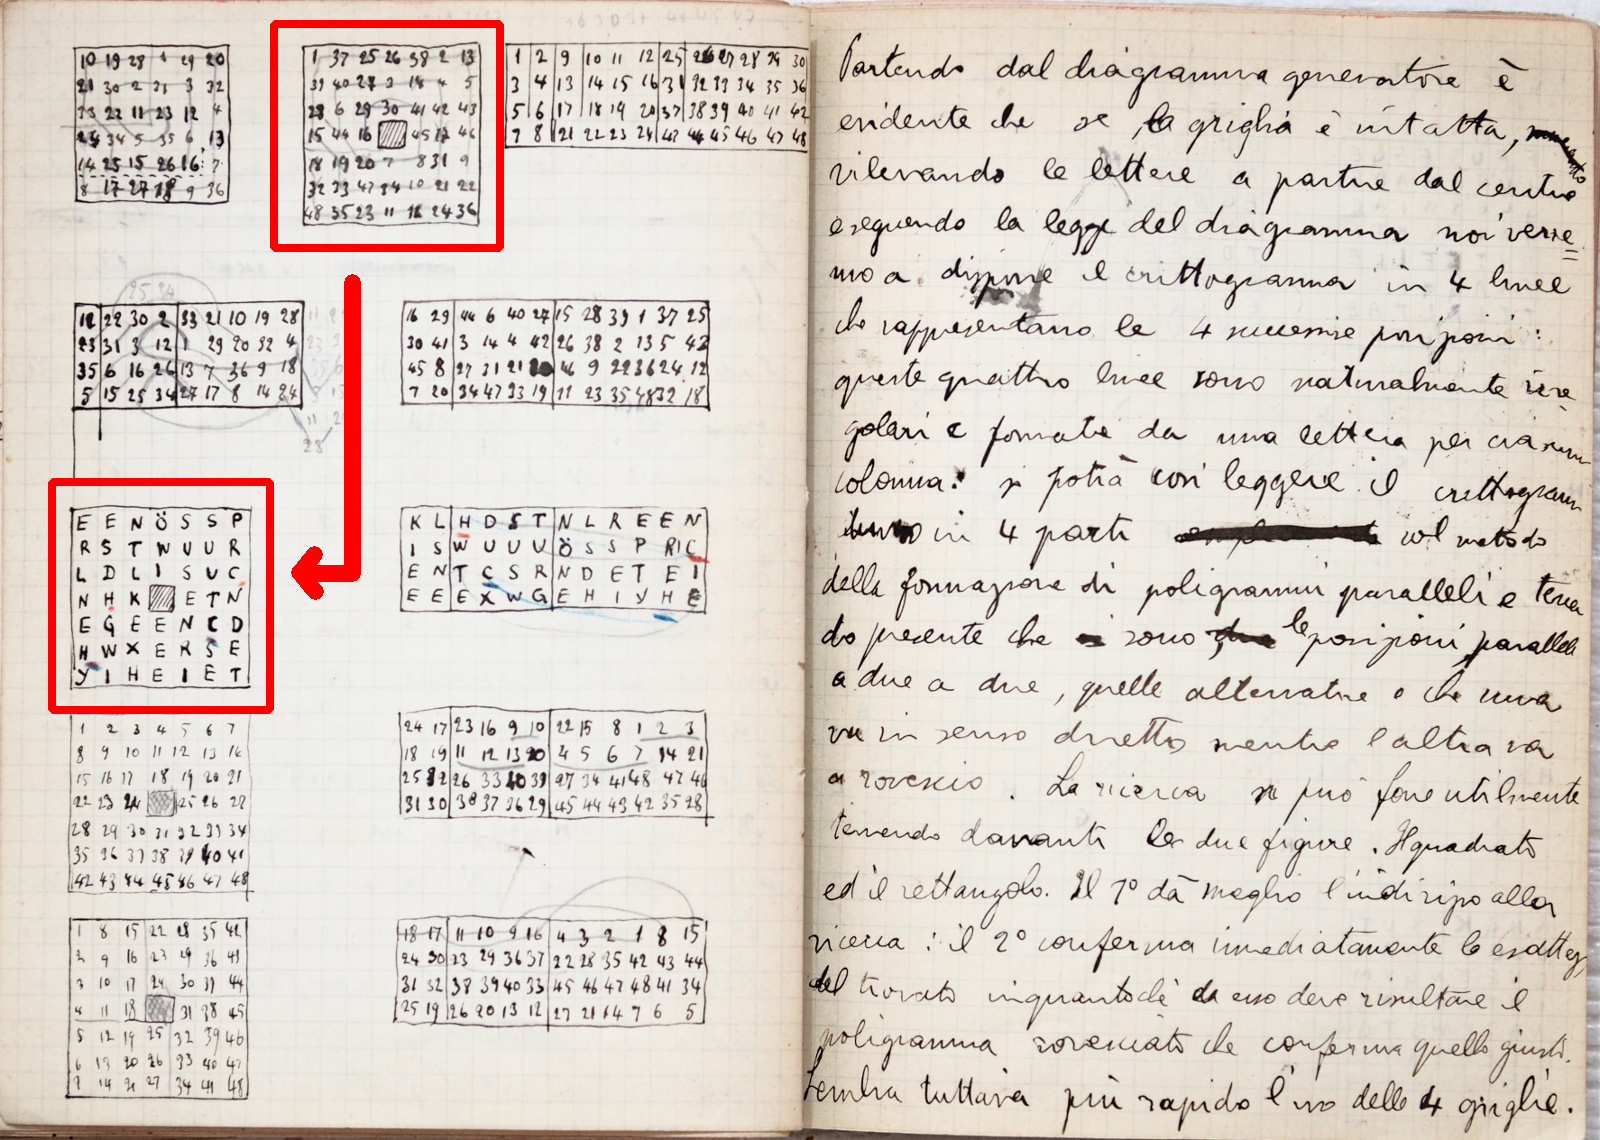 10 19 28 1 29 20
21 30 2 31 3 32
33 22 11 23 12 4
24 34 5 35 6 13
14 25 15 26 16 7
8 17 27 18 9 36
1 37 25 26 38 2 13
39 40 27 3 14 4 5
28 6 29 30 41 42 43
15 44 16 45 17 46
18 19 20 7 8 31 9
32 33 47 34 10 21 22
48 35 23 11 12 24 36
1 2 9 10 11 12 25 26 27 28 29 30
3 4 13 14 15 16 31 32 33 34 35 36
5 6 17 18 19 20 37 38 39 40 41 42
7 8 21 22 23 24 43 44 45 46 47 48
25 24
22 30 2 33 21 10 19 28
23 31 3 12 1 29 20 32 4
35 6 16 26 13 7 36 9 18
5 15 25 34 27 17 8 14 24
28
16 29 44 6 40 27 15 28 39 1 37 25
30 41 3 14 4 42 26 38 2 13 5 43
45 8 17 31 21 10 46 9 22 36 24 12
7 20 34 47 33 19 11 23 35 48 32 18
E E N Ö S S P
R S T W U U R
L D L I S U C
N H K E T N
E G E E N C D
H W X E R S E
Y I H E I E T
K L H D S T N L R E E N
I S W U U U Ö S S P R C
E N T C S R N D E T E I
E E E X W G E H I Y H E
1 2 3 4 5 6 7
8 9 10 11 12 13 14
15 16 17 18 19 20 21
22 23 24 25 26 27
28 29 30 31 32 33 34
35 36 37 38 39 40 41
42 43 44 45 46 47 48
24 17 23 16 9 10 22 15 8 1 2 3
18 19 11 12 13 20 4 5 6 7 14 21
25 32 26 33 40 39 27 34 41 48 47 46
31 30 38 37 36 29 45 44 43 42 35 28
1 8 15 22 28 35 42
2 9 16 23 29 36 43
3 10 17 24 30 37 44
4 11 18 31 38 45
5 12 19 25 32 39 46
6 13 20 26 33 40 47
7 14 21 27 34 41 48
18 17 11 10 9 16 4 3 2 1 8 15
24 30 23 29 36 37 22 28 35 42 43 44
31 32 38 39 40 33 45 46 47 48 41 34
25 19 26 20 13 12 27 21 14 7 6 5
Partendo dal diagramma generatore è
evidente che se la griglia è intatta,
rilevando le lettere a partire dal centro
e seguendo la legge del diagramma noi verre=
mo a disporre il crittogramma in 4 linee
che rappresentano le 4 successive posizioni:
queste quattro linee sono naturalmente irre
golari e formate da una lettera per ciascuna
colonna: si potrà così leggere il crittogram
in 4 parti col metodo
della formazione di poligrammi paralleli e tenen
do presente che sono le posizioni parallele
a due a due, quelle alternative e che una
va in senso diretto mentre l'altra va
a rovescio. La ricerca si può fare utilmente
tenendo davanti le due figure. Il quadrato
ed il rettangolo. Il 1° dà meglio l'indirizzo alla
ricerca: il 2° conferma immediatamente le esattezze
del trovato inquantochè da esso deve risultare il
poligramma rovesciato che conferma quello giusto.
Sembra tuttavia più rapido l'uso delle 4 griglie.